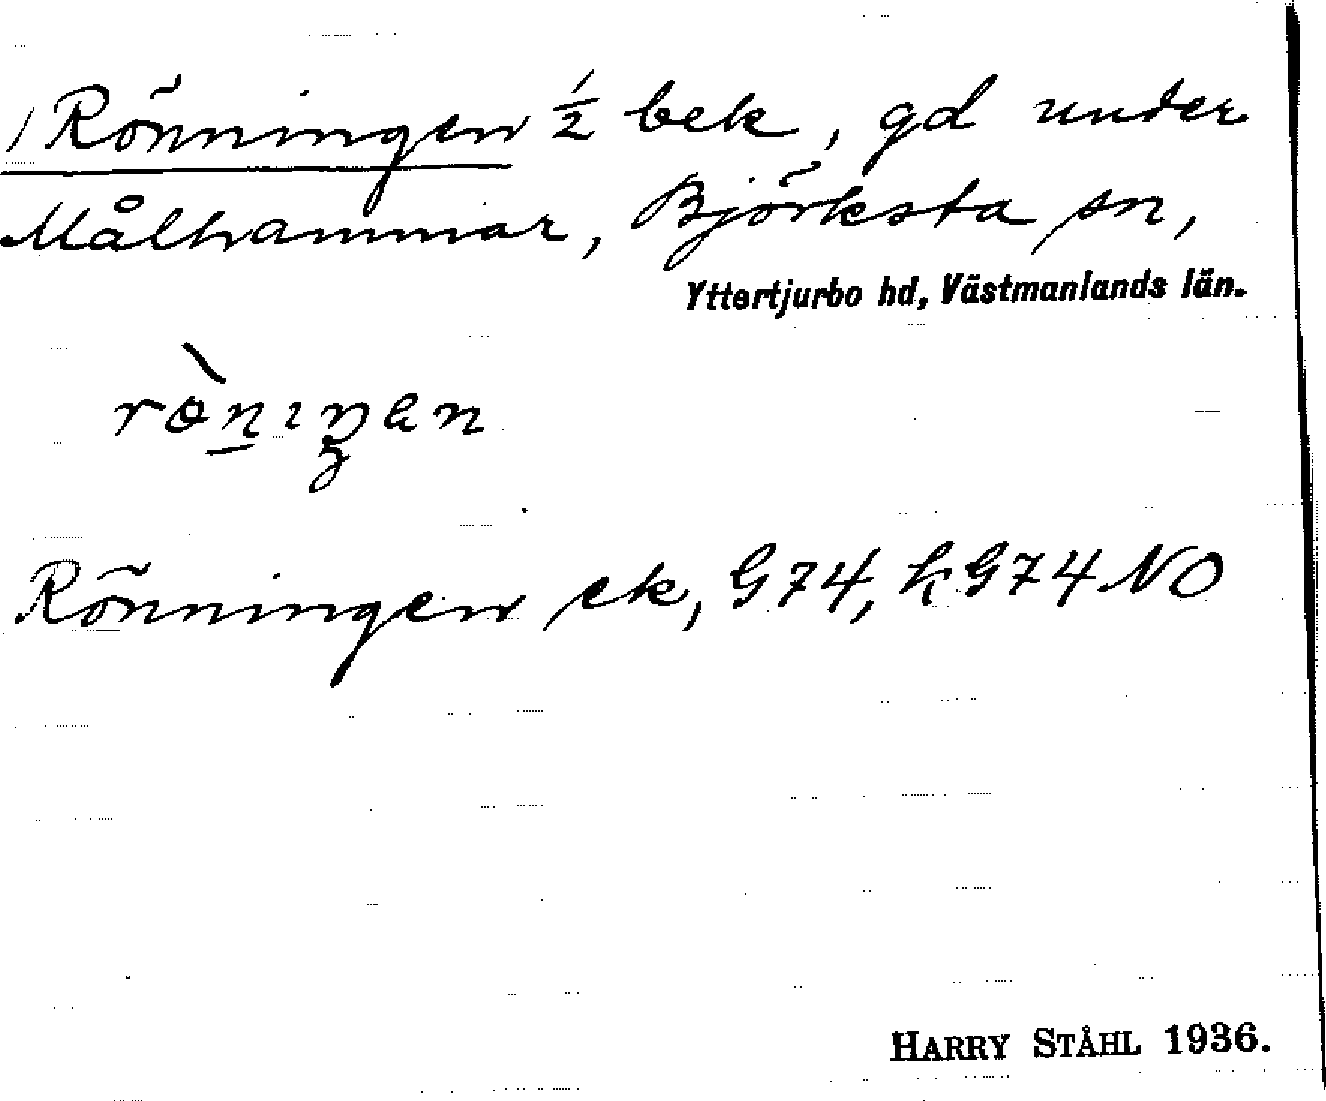 / Rönningen ½ bek, gd under
Målhammar, Björksta sn,
Yttertjurbo hd, Västmanlands län.
Rönningen ek, G74, k G74 NO
HARRY STÅHL 1936.